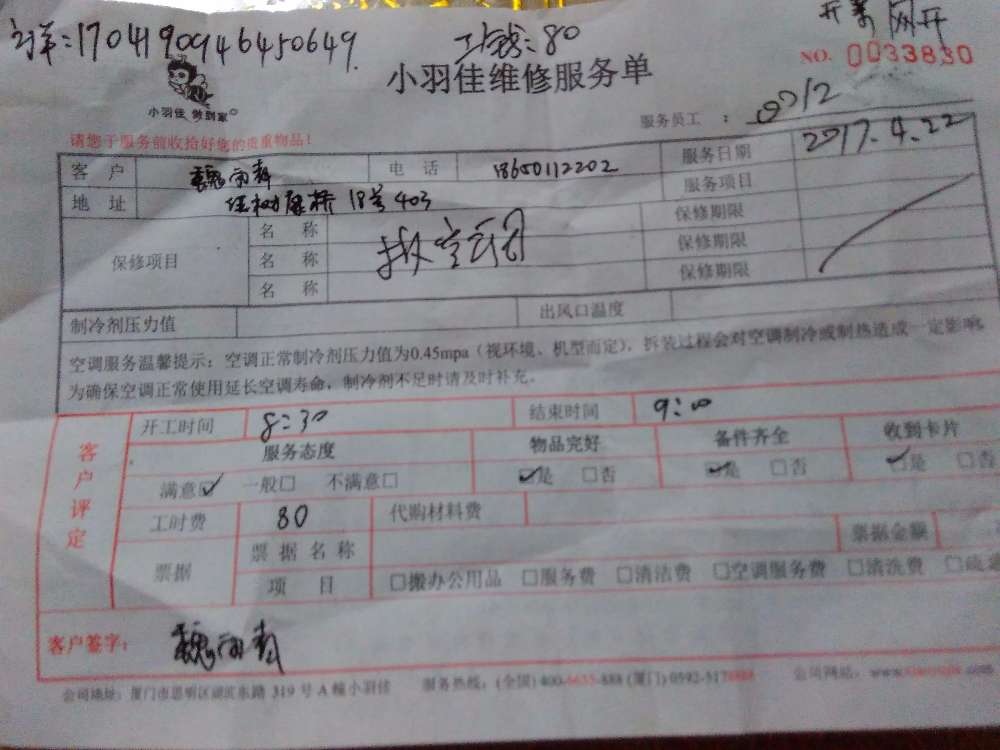 1704190946450649 工钱:80
NO. 0033830
小羽佳 做到家
小羽佳维修服务单
服务员工 :
请您于服务前收拾好您的贵重物品!
客户 电话 18650112202 服务日期 2017.4.22
地址 18号403 服务项目
保修项目 名称 拆空调 保修期限
名称 保修期限
名称 保修期限
制冷剂压力值 出风口温度
空调服务温馨提示:空调正常制冷剂压力值为0.45mpa(视环境、机型而定),拆装过程会对空调制冷或制热造成一定影响
为确保空调正常使用延长空调寿命,制冷剂不足时请及时补充。
客户评定
开工时间 8:30 结束时间 9:00
服务态度 物品完好 备件齐全 收到卡片
满意☑ 一般□ 不满意□ ☑是 □否 ☑是 □否 ☑是 □否
工时费 80 代购材料费
票据 票据名称 票据金额
项目 □搬办公用品 □服务费 □清洁费 □空调服务费 □清洗费
客户签字:
公司地址:厦门市思明区湖滨东路 319 号 A 幢小羽佳 服务热线:(全国) 400-6655-888 (厦门) 0592-5178888 公司网站: